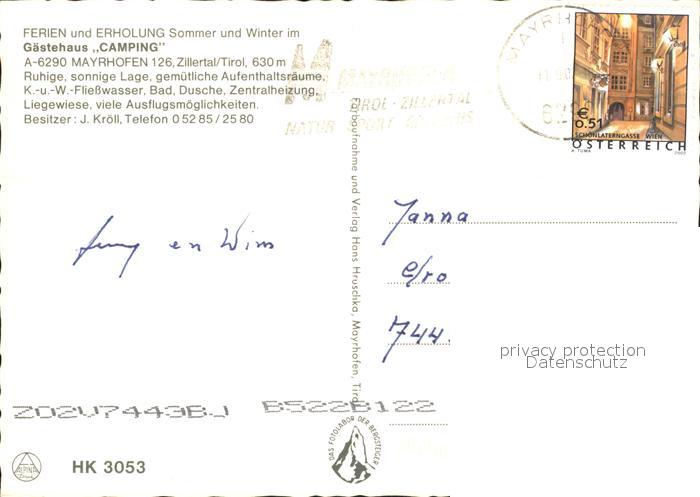 FERIEN und ERHOLUNG Sommer und Winter im
Gästehaus „CAMPING"
A-6290 MAYRHOFEN 126, Zillertal/Tirol, 630 m
Ruhige, sonnige Lage, gemütliche Aufenthaltsräume,
K.-u.-W.-Fließwasser, Bad, Dusche, Zentralheizung,
Liegewiese, viele Ausflugsmöglichkeiten.
Besitzer: J. Kröll, Telefon 0 52 85 / 25 80
MAYRHOFEN
TIROL - ZILLERTAL
NATUR SPORT
MAYRH
€
0.51
SCHÖNLATERNGASSE WIEN
ÖSTERREICH
A. TUMA
2002
Farbaufnahme und Verlag Hans Hruschka, Mayrhofen, Tirol
en Wim
Janna
c/o
744.
privacy protection
Datenschutz
ZO2V7443BJ B522B122
DAS FOTOLABOR DER BERGSTEIGER
ALPINA
Druck
HK 3053